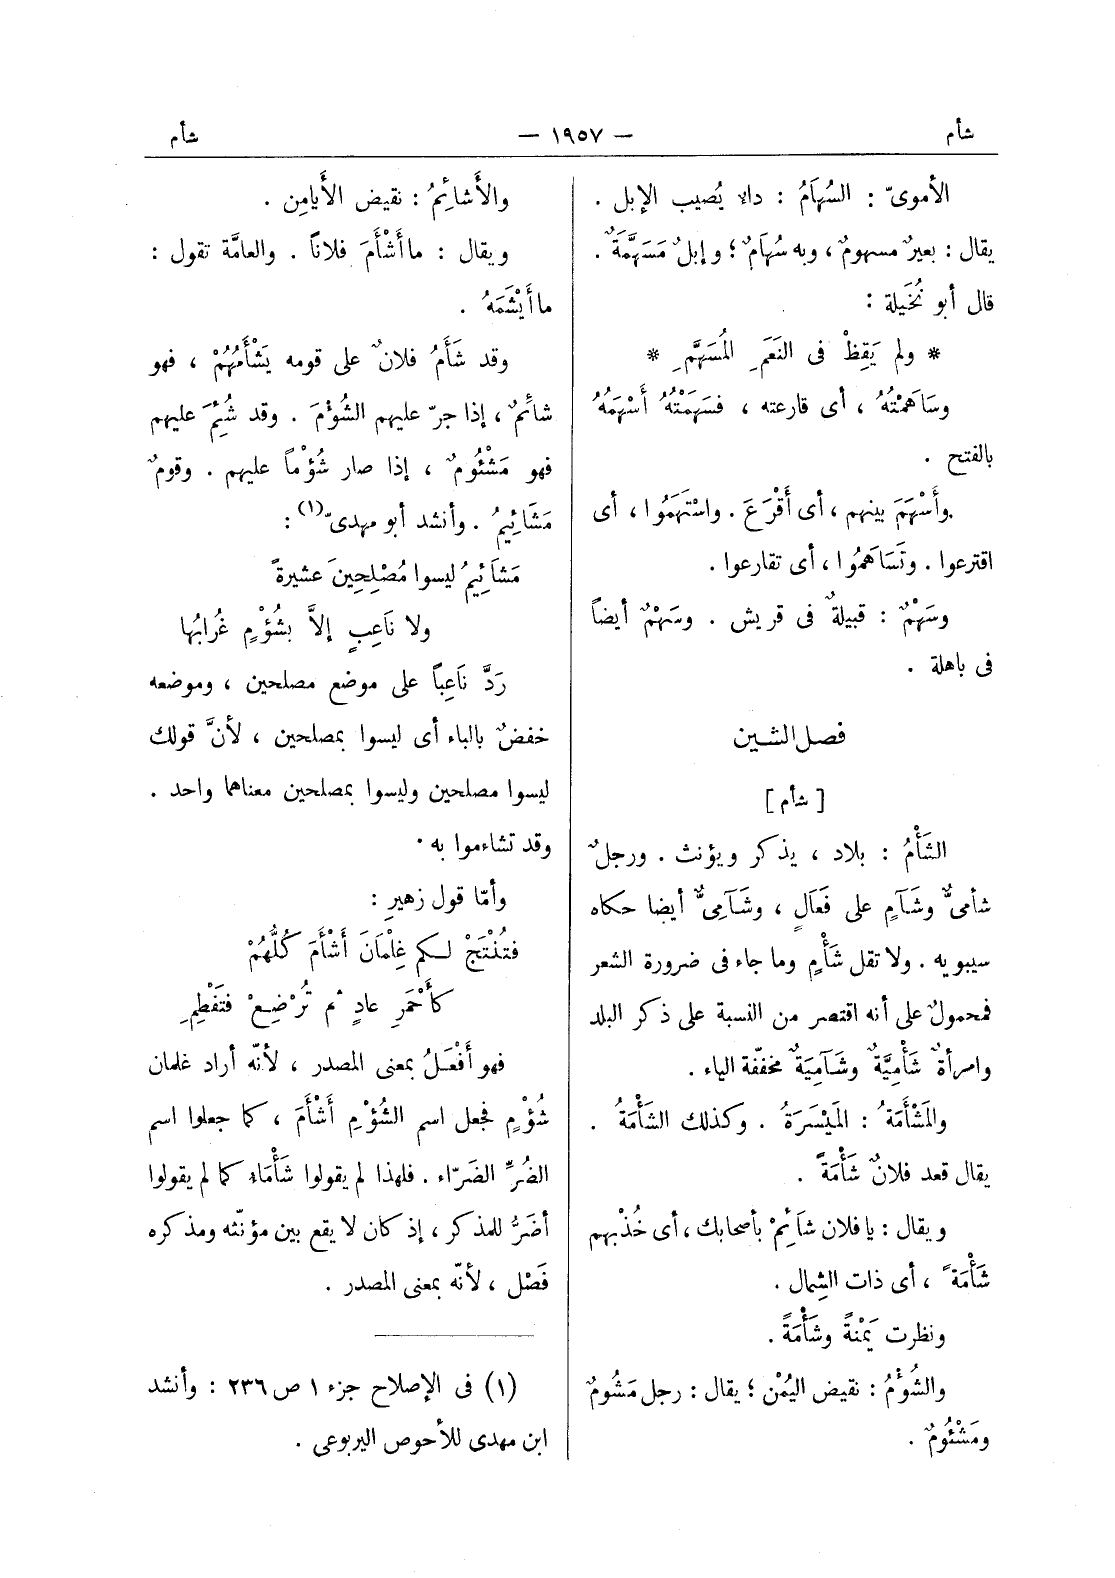 شأم
— ١٩٥٧ —
شأم
الأموىّ : السُهَامُ : داء يُصيب الإبل .
يقال : بعيرٌ مسهومٌ ، وبه سُهَامٌ ؛ وإبلٌ مُسَهَّمَةٌ .
قال أبو نُخَيلة :
* ولم يَقِظْ فى النَعَمِ المُسَهَّمِ *
وسَاهَمْتُهُ ، أى قارعته ، فسَهَمْتُهُ أَسْهَمُهُ
بالفتح .
وأَسْهَمَ بينهم ، أى أَقْرَعَ . واسْتَهَمُوا ، أى
اقترعوا . وتَسَاهَمُوا ، أى تقارعوا .
وسَهْمٌ : قبيلةٌ فى قريش . وسَهْمٌ أيضاً
فى باهلة .
فصل الشين
[ شأم ]
الشَأْمُ : بلاد ، يذكر ويؤنث . ورجلٌ
شأمىٌّ وشَآمٍ على فَعَالٍ ، وشَآمِىٌّ أيضا حكاه
سيبويه . ولا تقل شَأْمٍ وما جاء فى ضرورة الشعر
فمحمولٌ على أنه اقتصر من النسبة على ذكر البلد
وامرأةٌ شَأْمِيَّةٌ وشَآمِيَةٌ مخففّة الياء .
والمَشْأَمَةُ : المَيْسَرَةُ . وكذلك الشَأْمَةُ .
يقال قعد فلانٌ شَأْمَةً .
ويقال : يا فلان شَائِمْ بأصحابك ، أى خُذْ بهم
شَأْمَةً ، أى ذات الشِمال .
ونظرت يَمْنَةً وشَأْمَةً .
والشُؤْمُ : نقيض اليُمْن ؛ يقال : رجل مَشُومٌ
ومَشْئُومٌ .
والأَشائِمُ : نقيض الأَيامِن .
ويقال : ما أَشْأَمَ فلاناً . والعامَّة تقول :
ما أَيْشَمَهُ .
وقد شَأَمَ فلانٌ على قومه يَشْأَمُهُمْ ، فهو
شائمٌ ، إذا جرّ عليهم الشُؤْمَ . وقد شُئِمَ عليهم
فهو مَشْئُومٌ ، إذا صار شُؤْماً عليهم . وقومٌ
مَشَائِيمُ . وأنشد أبو مهدىّ(١) :
مَشَائِيمُ ليسوا مُصْلِحِينَ عشيرةً
ولا نَاعِبٍ إلاَّ بشُؤْمٍ غُرابُها
رَدَّ نَاعِباً على موضع مصلحين ، وموضعه
خفضٌ بالباء أى ليسوا بمصلحين ، لأنَّ قولك
ليسوا مصلحين وليسوا بمصلحين معناهما واحد .
وقد تشاءموا به .
وأمّا قول زهيرٍ :
فتُنْتَجْ لكم غِلْمَانَ أَشْأَمَ كُلُّهُمْ
كأَحْمَرِ عادٍ ثم تُرْضِعْ فتَفْطِمِ
فهو أَفْعَلُ بمعنى المصدر ، لأنّه أراد غلمان
شُؤْمٍ فجعل اسم الشُؤْمِ أَشْأَمَ ، كما جعلوا اسم
الضُرِّ الضَرّاء . فلهذا لم يقولوا شَأْمَاءَ كما لم يقولوا
أضَرُّ للمذكر ، إذ كان لا يقع بين مؤنثه ومذكره
فَصْل ، لأنّه بمعنى المصدر .
(١) فى الإصلاح جزء ١ ص ٢٣٦ : وأنشد
ابن مهدى للأحوص اليربوعى .